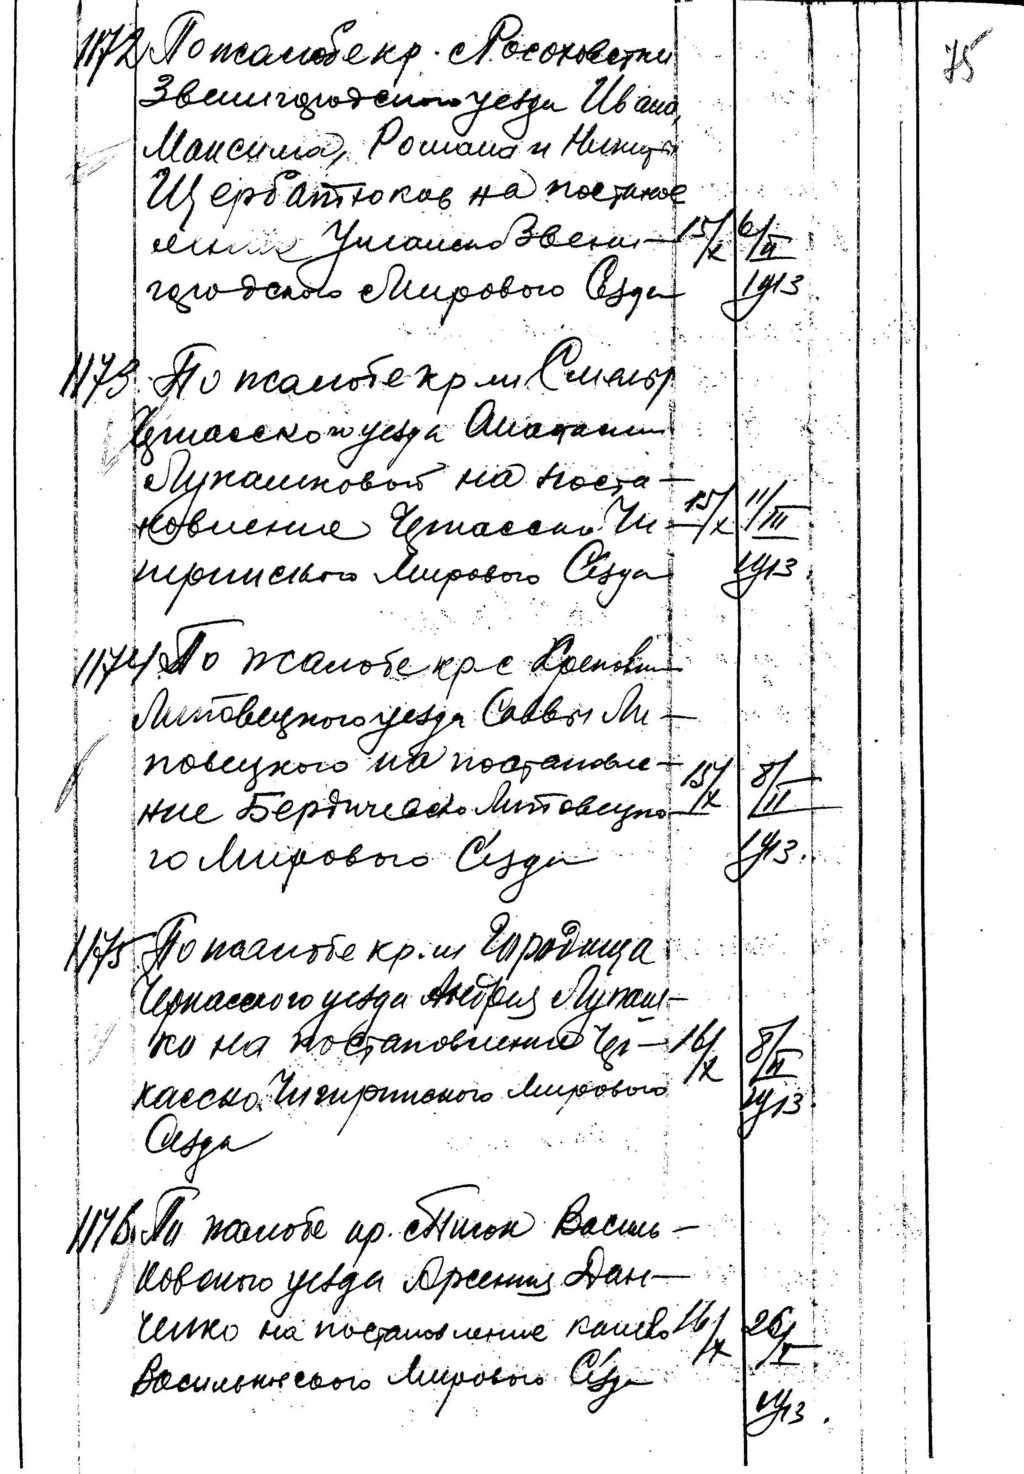 75
1172 По жалобе кр. с Росоховатки
Звенигородского уезда Ивана,
Максима, Романа и Никиты
Щербатюков на постанов
ления Умгамско Звени- 15/X 6/II
городского Мирового Сезда 1913.
1173 По жалобе кр м Смелы
Черкасского уезда Анастасии
Лукашковой на поста-
новление Черкасско Чи- 15/X 11/III
гиринского Мирового Сезда 1913.
1174 По жалобе кр с
Липовецкого уезда Саввы Ли-
повецкого на постановле- 15/X 8/II
ние Бердичевско Липовецко-
го Мирового Сезда 1913.
1175 По жалобе кр. м Городища
Черкасского уезда Андрея Лукаш-
ко на постановление Чер- 16/X 8/II
касско Чигиринского Мирового 1913.
Сезда
1176. По жалобе кр. с Василь-
ковского уезда Арсения Дан-
ченко на постановление канево 16/X 26/I
Васильковского Мирового Сезда
1913.